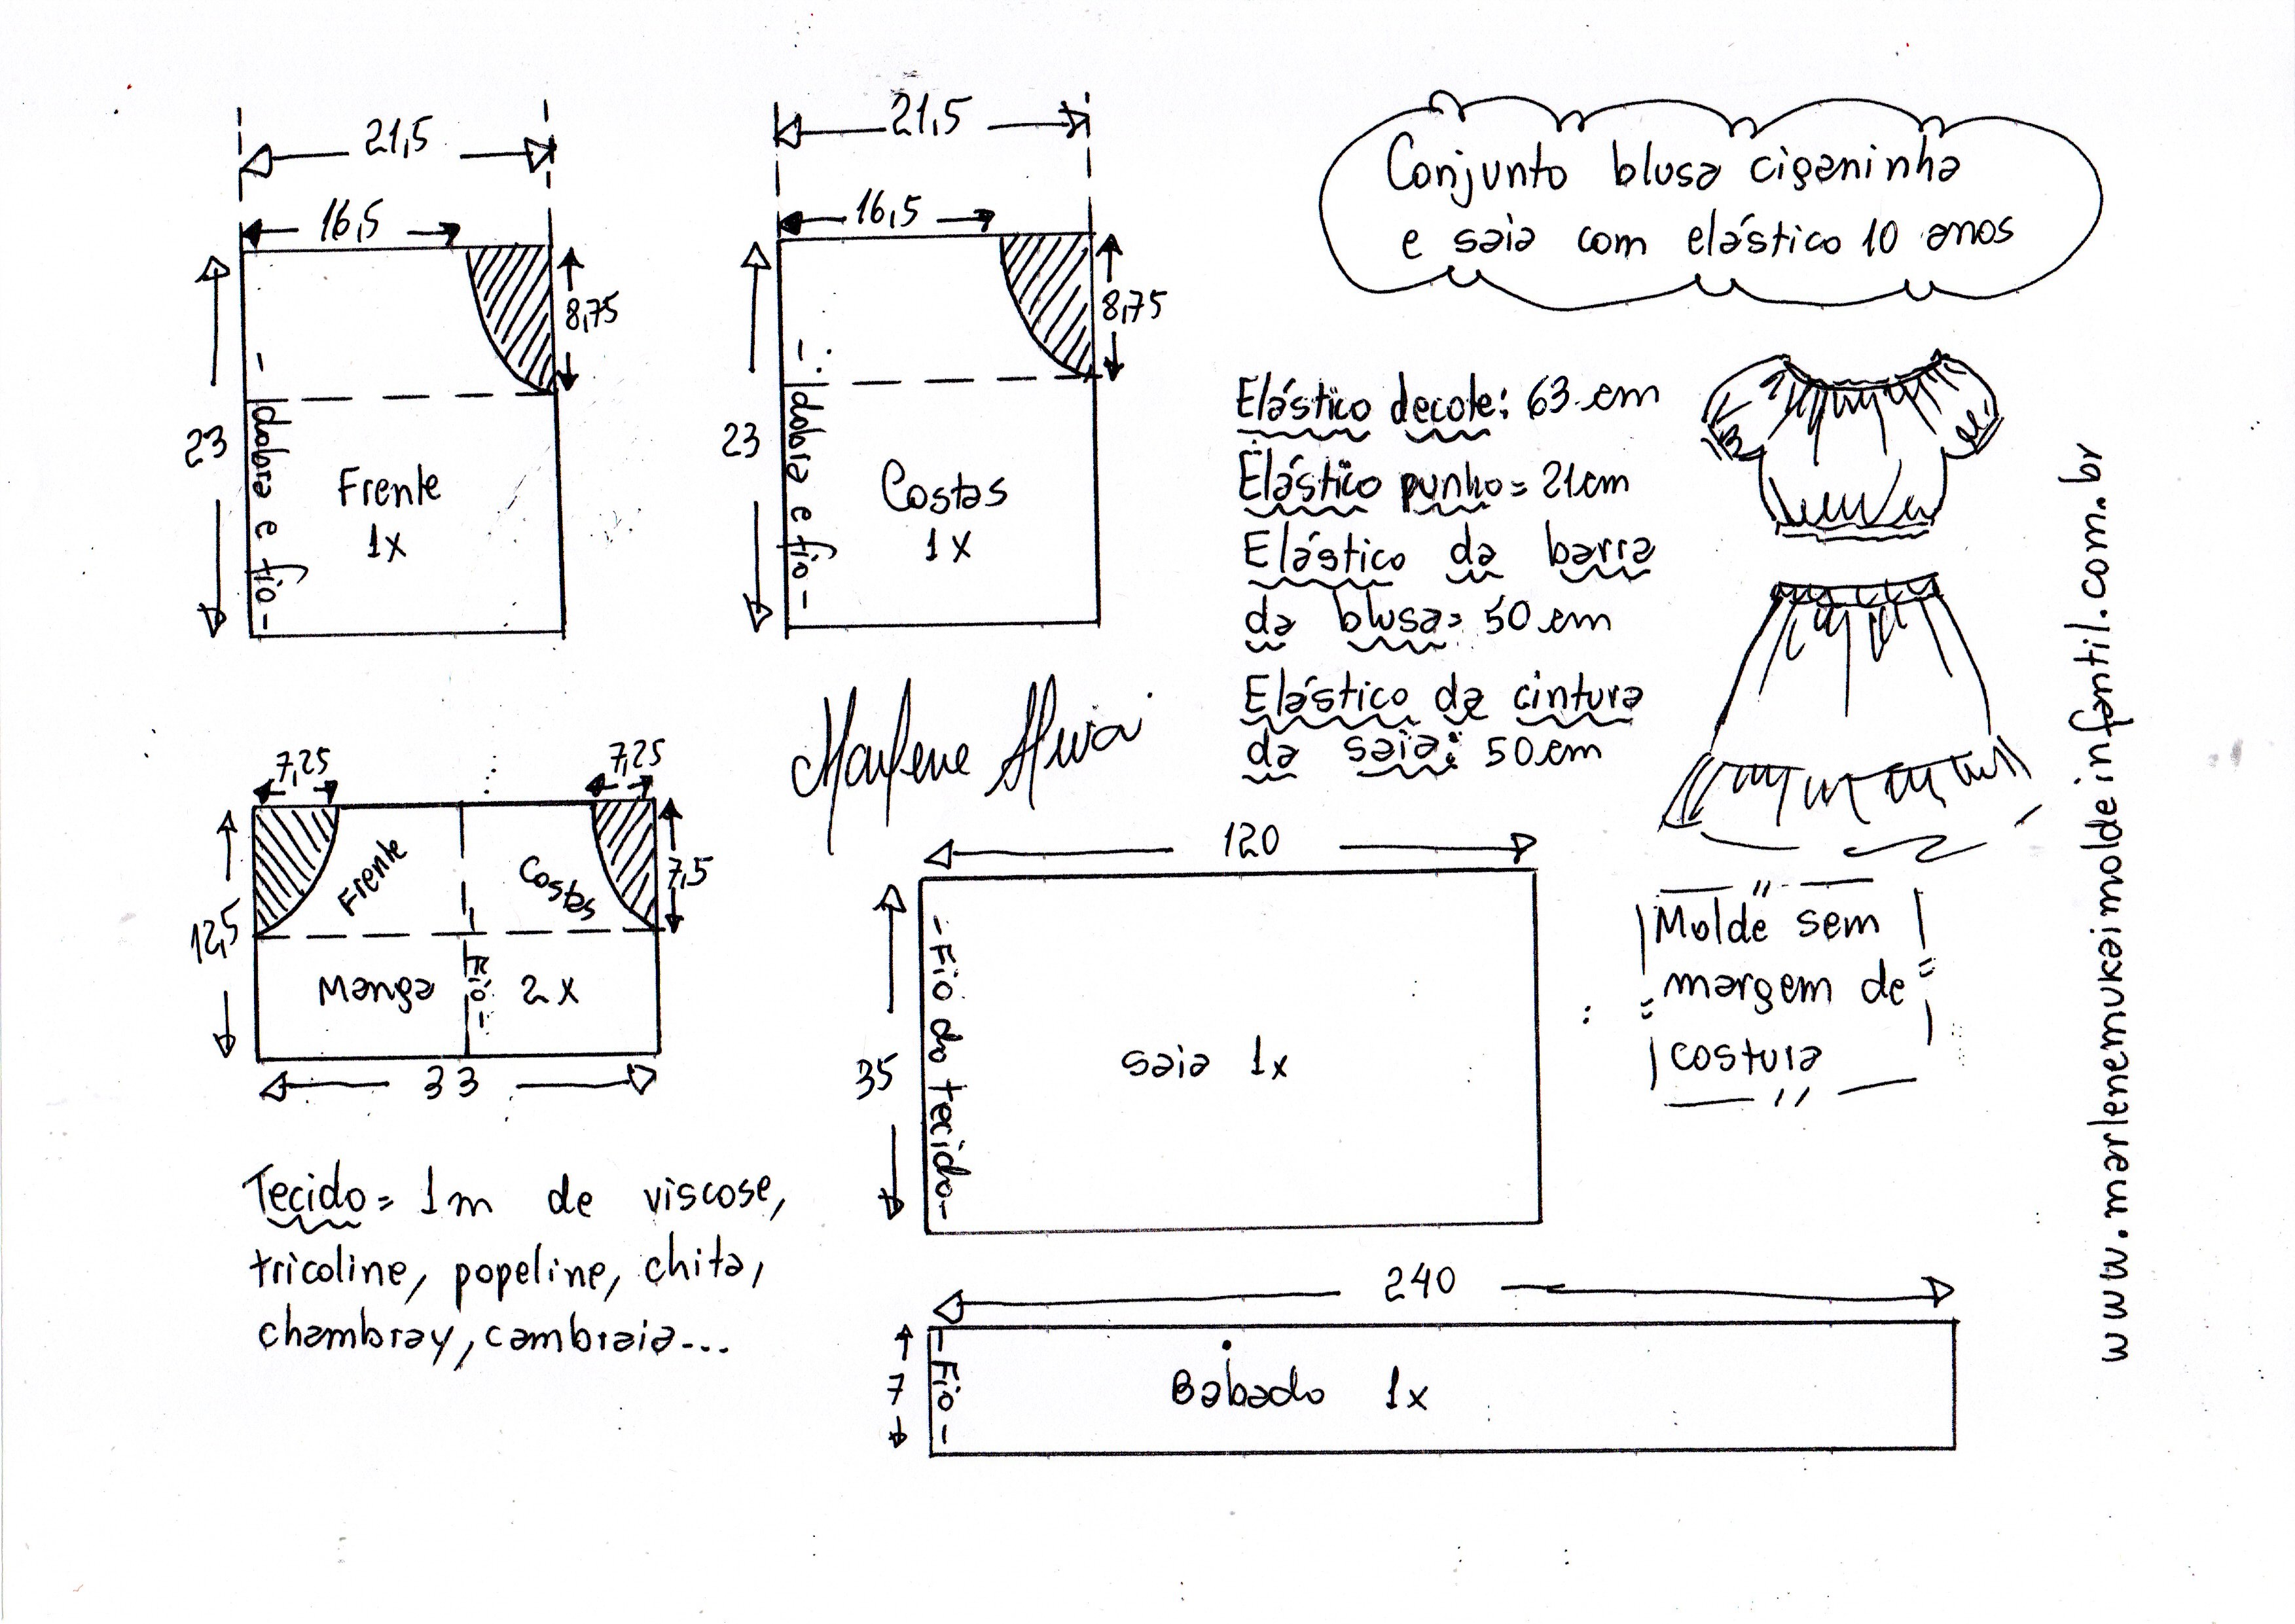 Conjunto blusa ciganinha
e saia com elástico 10 anos
21,5
16,5
8,75
23
dobra e fio
Frente
1x
21,5
16,5
8,75
23
dobra e fio
Costas
1x
Elástico decote: 63 cm
Elástico punho= 21cm
Elástico da barra
da blusa= 50 cm
Elástico da cintura
da saia: 50cm
www.marlenemukaimoldeinfantil.com.br
Marlene Mukai
7,25
7,25
7,5
12,5
Frente
Costas
Manga
Fio
2x
33
Tecido= 1m de viscose,
tricoline, popeline, chita,
chambray, cambraia...
120
35
Fio do tecido
saia 1x
Molde sem
margem de
costura
240
7
Fio
Babado 1x